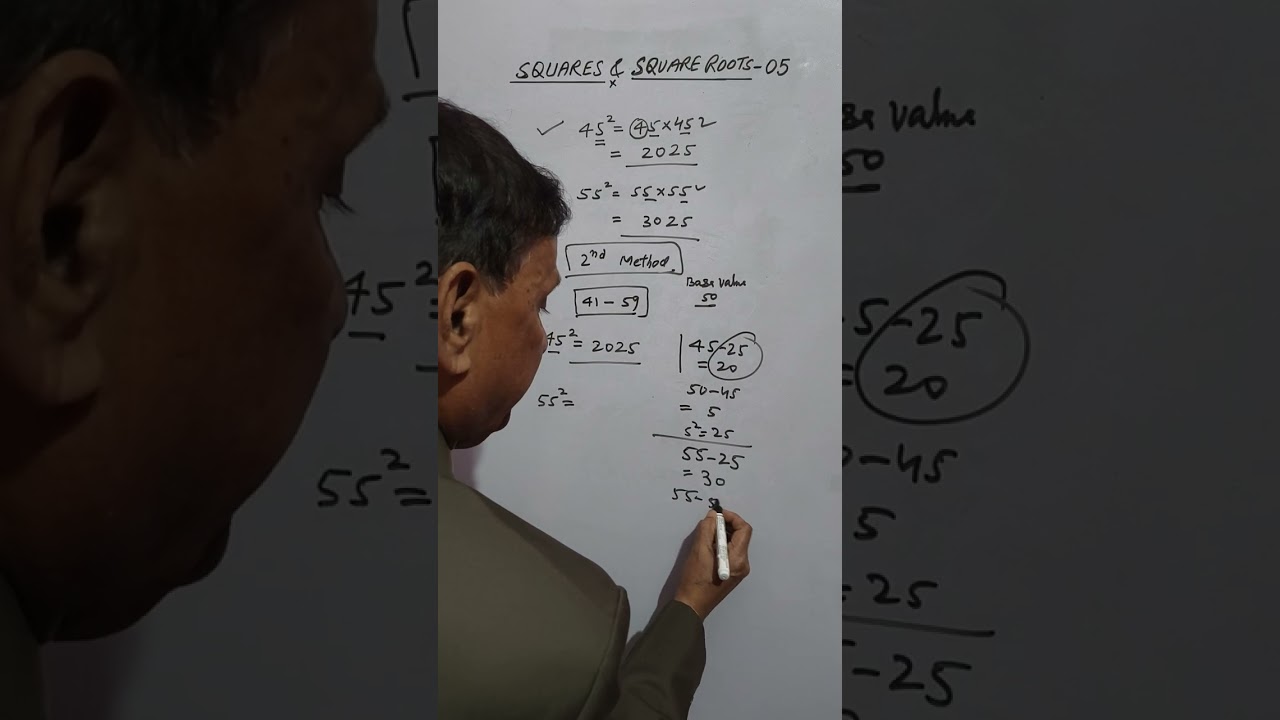 SQUARES & SQUARE ROOTS-05
x
✓ 45² = 45×45✓
= 2025
55² = 55×55✓
= 3025
2nd Method.
41-59
Base value
50
45² = 2025
45-25
= 20
50-45
= 5
5² = 25
55² =
55-25
= 30
55-